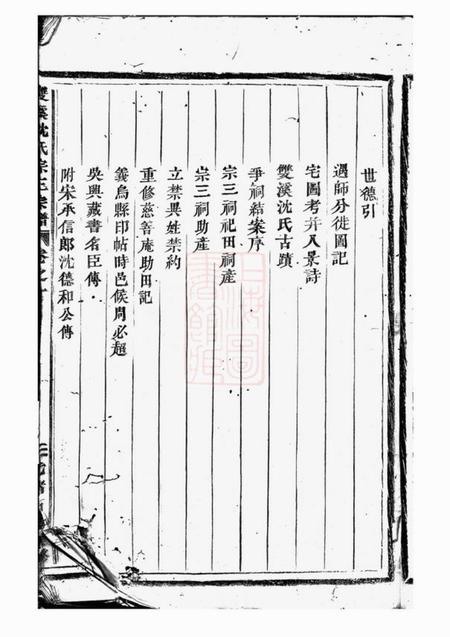 世德引
遇師分徙圖記
宅圖考并八景詩
雙溪沈氏古蹟
爭祠結案序
宗三祠祀田祠産
宗三祠助産
立禁異姓禁約
重修慈善庵助田記
義烏縣印帖時邑侯周必超
吳興藏書名臣傳
附宋承信郎沈德和公傳
雙溪沈氏宗三宗譜
卷之